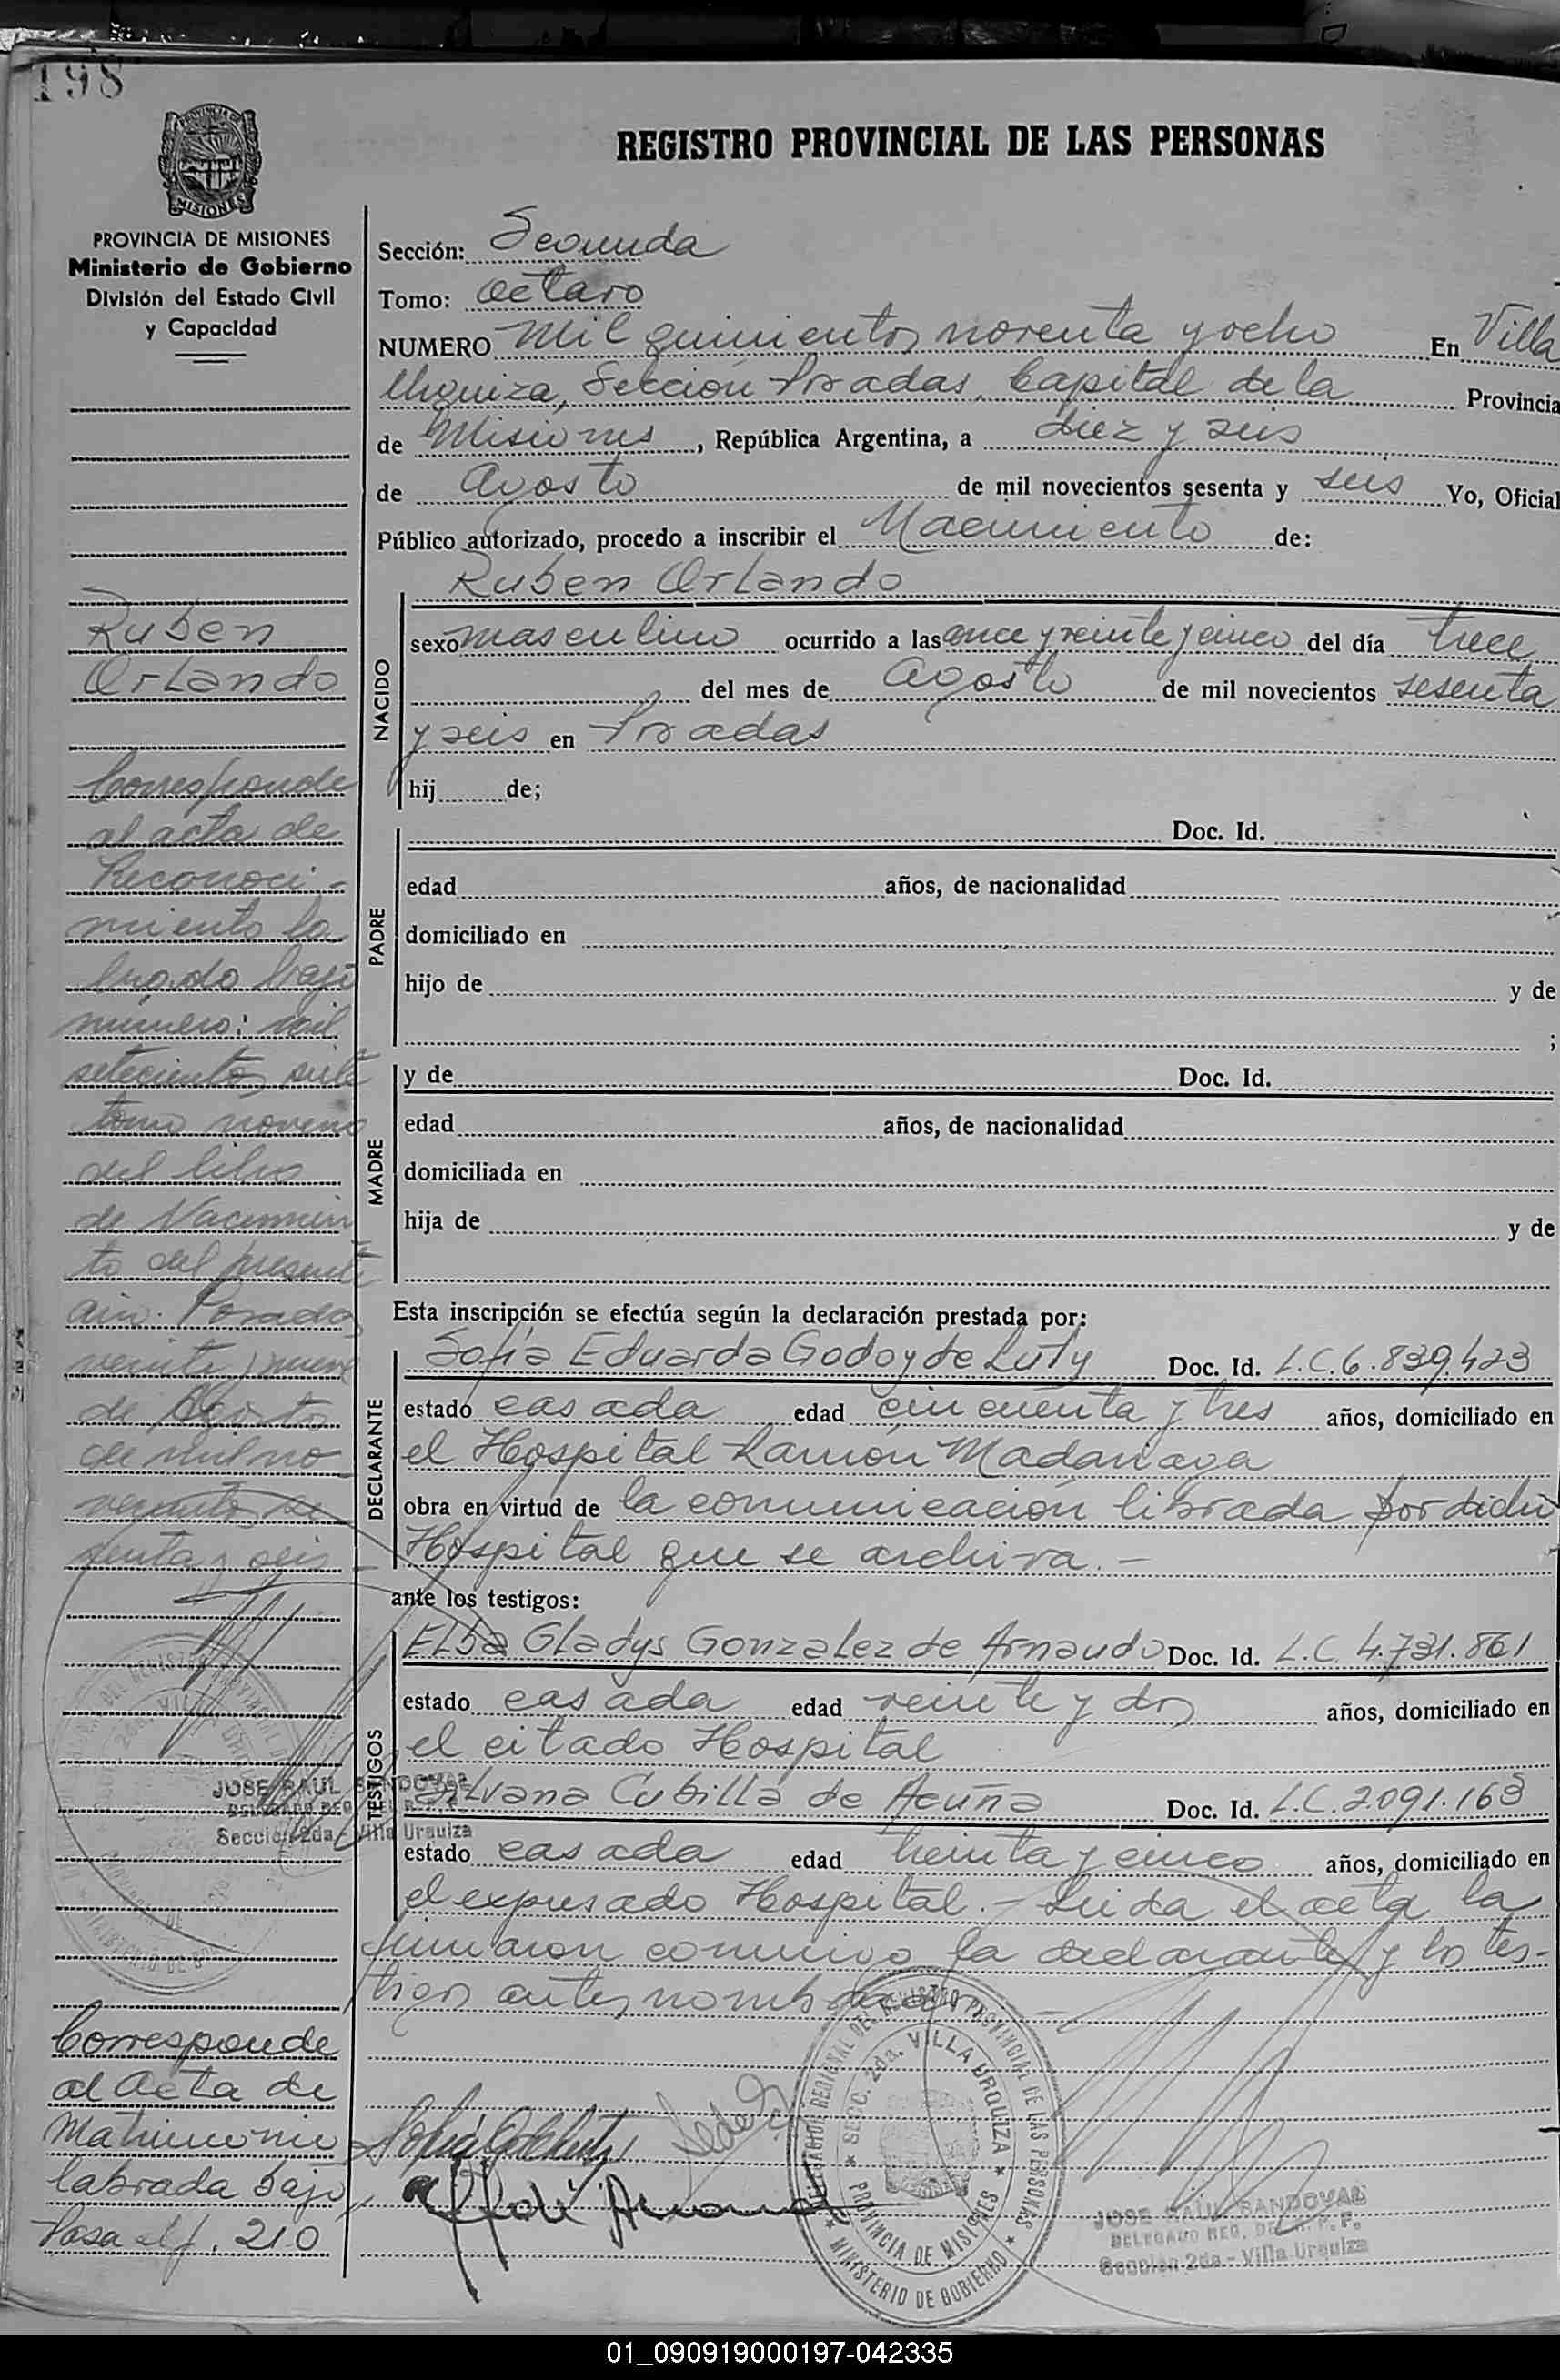 198
REGISTRO PROVINCIAL DE LAS PERSONAS
PROVINCIA DE MISIONES
Ministerio de Gobierno
División del Estado Civil
y Capacidad
Ruben
Orlando
Corresponde
al acta de
Reconoci-
miento la
brado bajo
número: mil
setecientos siete
tomo noveno
del libro
de Nacimien
to del presente
año. Posadas
veinte y nueve
de Agosto
de mil no
vecientos se
senta y seis
JOSE RAUL SANDOVAL
Sección 2da - Villa Urquiza
Corresponde
al acta de
Matrimonio
labrada bajo
Pasa al f. 210
Sección: Segunda
Tomo: Octavo
NUMERO Mil quinientos noventa y ocho En Villa
Urquiza, Sección Posadas, Capital de la Provincia
de Misiones, República Argentina, a diez y seis
de Agosto de mil novecientos sesenta y seis Yo, Oficial
Público autorizado, procedo a inscribir el Nacimiento de:
NACIDO
Ruben Orlando
sexo masculino ocurrido a las once y veinte y cinco del día trece
del mes de Agosto de mil novecientos sesenta
y seis en Posadas
hij de;
PADRE
Doc. Id.
edad años, de nacionalidad
domiciliado en
hijo de y de
;
MADRE
y de Doc. Id.
edad años, de nacionalidad
domiciliada en
hija de y de
Esta inscripción se efectúa según la declaración prestada por:
DECLARANTE
Sofía Eduarda Godoy de Luty Doc. Id. L.C. 6.839.423
estado casada edad cincuenta y tres años, domiciliado en
el Hospital Ramón Madariaga
obra en virtud de la comunicación librada por dicho
Hospital que se archiva.-
ante los testigos:
TESTIGOS
Elba Gladys Gonzalez de Arnaudo Doc. Id. L.C. 4.731.861
estado casada edad veinte y dos años, domiciliado en
el citado Hospital
Silvana Cubilla de Acuña Doc. Id. L.C. 2.091.163
estado casada edad treinta y cinco años, domiciliado en
el expresado Hospital.- Leida el acta la
firmaron conmigo la declarante y los tes-
tigos antes nombrados.-
DELEGACION REGIONAL DEL REGISTRO PROVINCIAL DE LAS PERSONAS
SECC. 2da. VILLA URQUIZA
PROVINCIA DE MISIONES
MINISTERIO DE GOBIERNO
JOSE RAUL SANDOVAL
DELEGADO REG. DEL R. P. P.
Sección 2da - Villa Urquiza
01_090919000197-042335